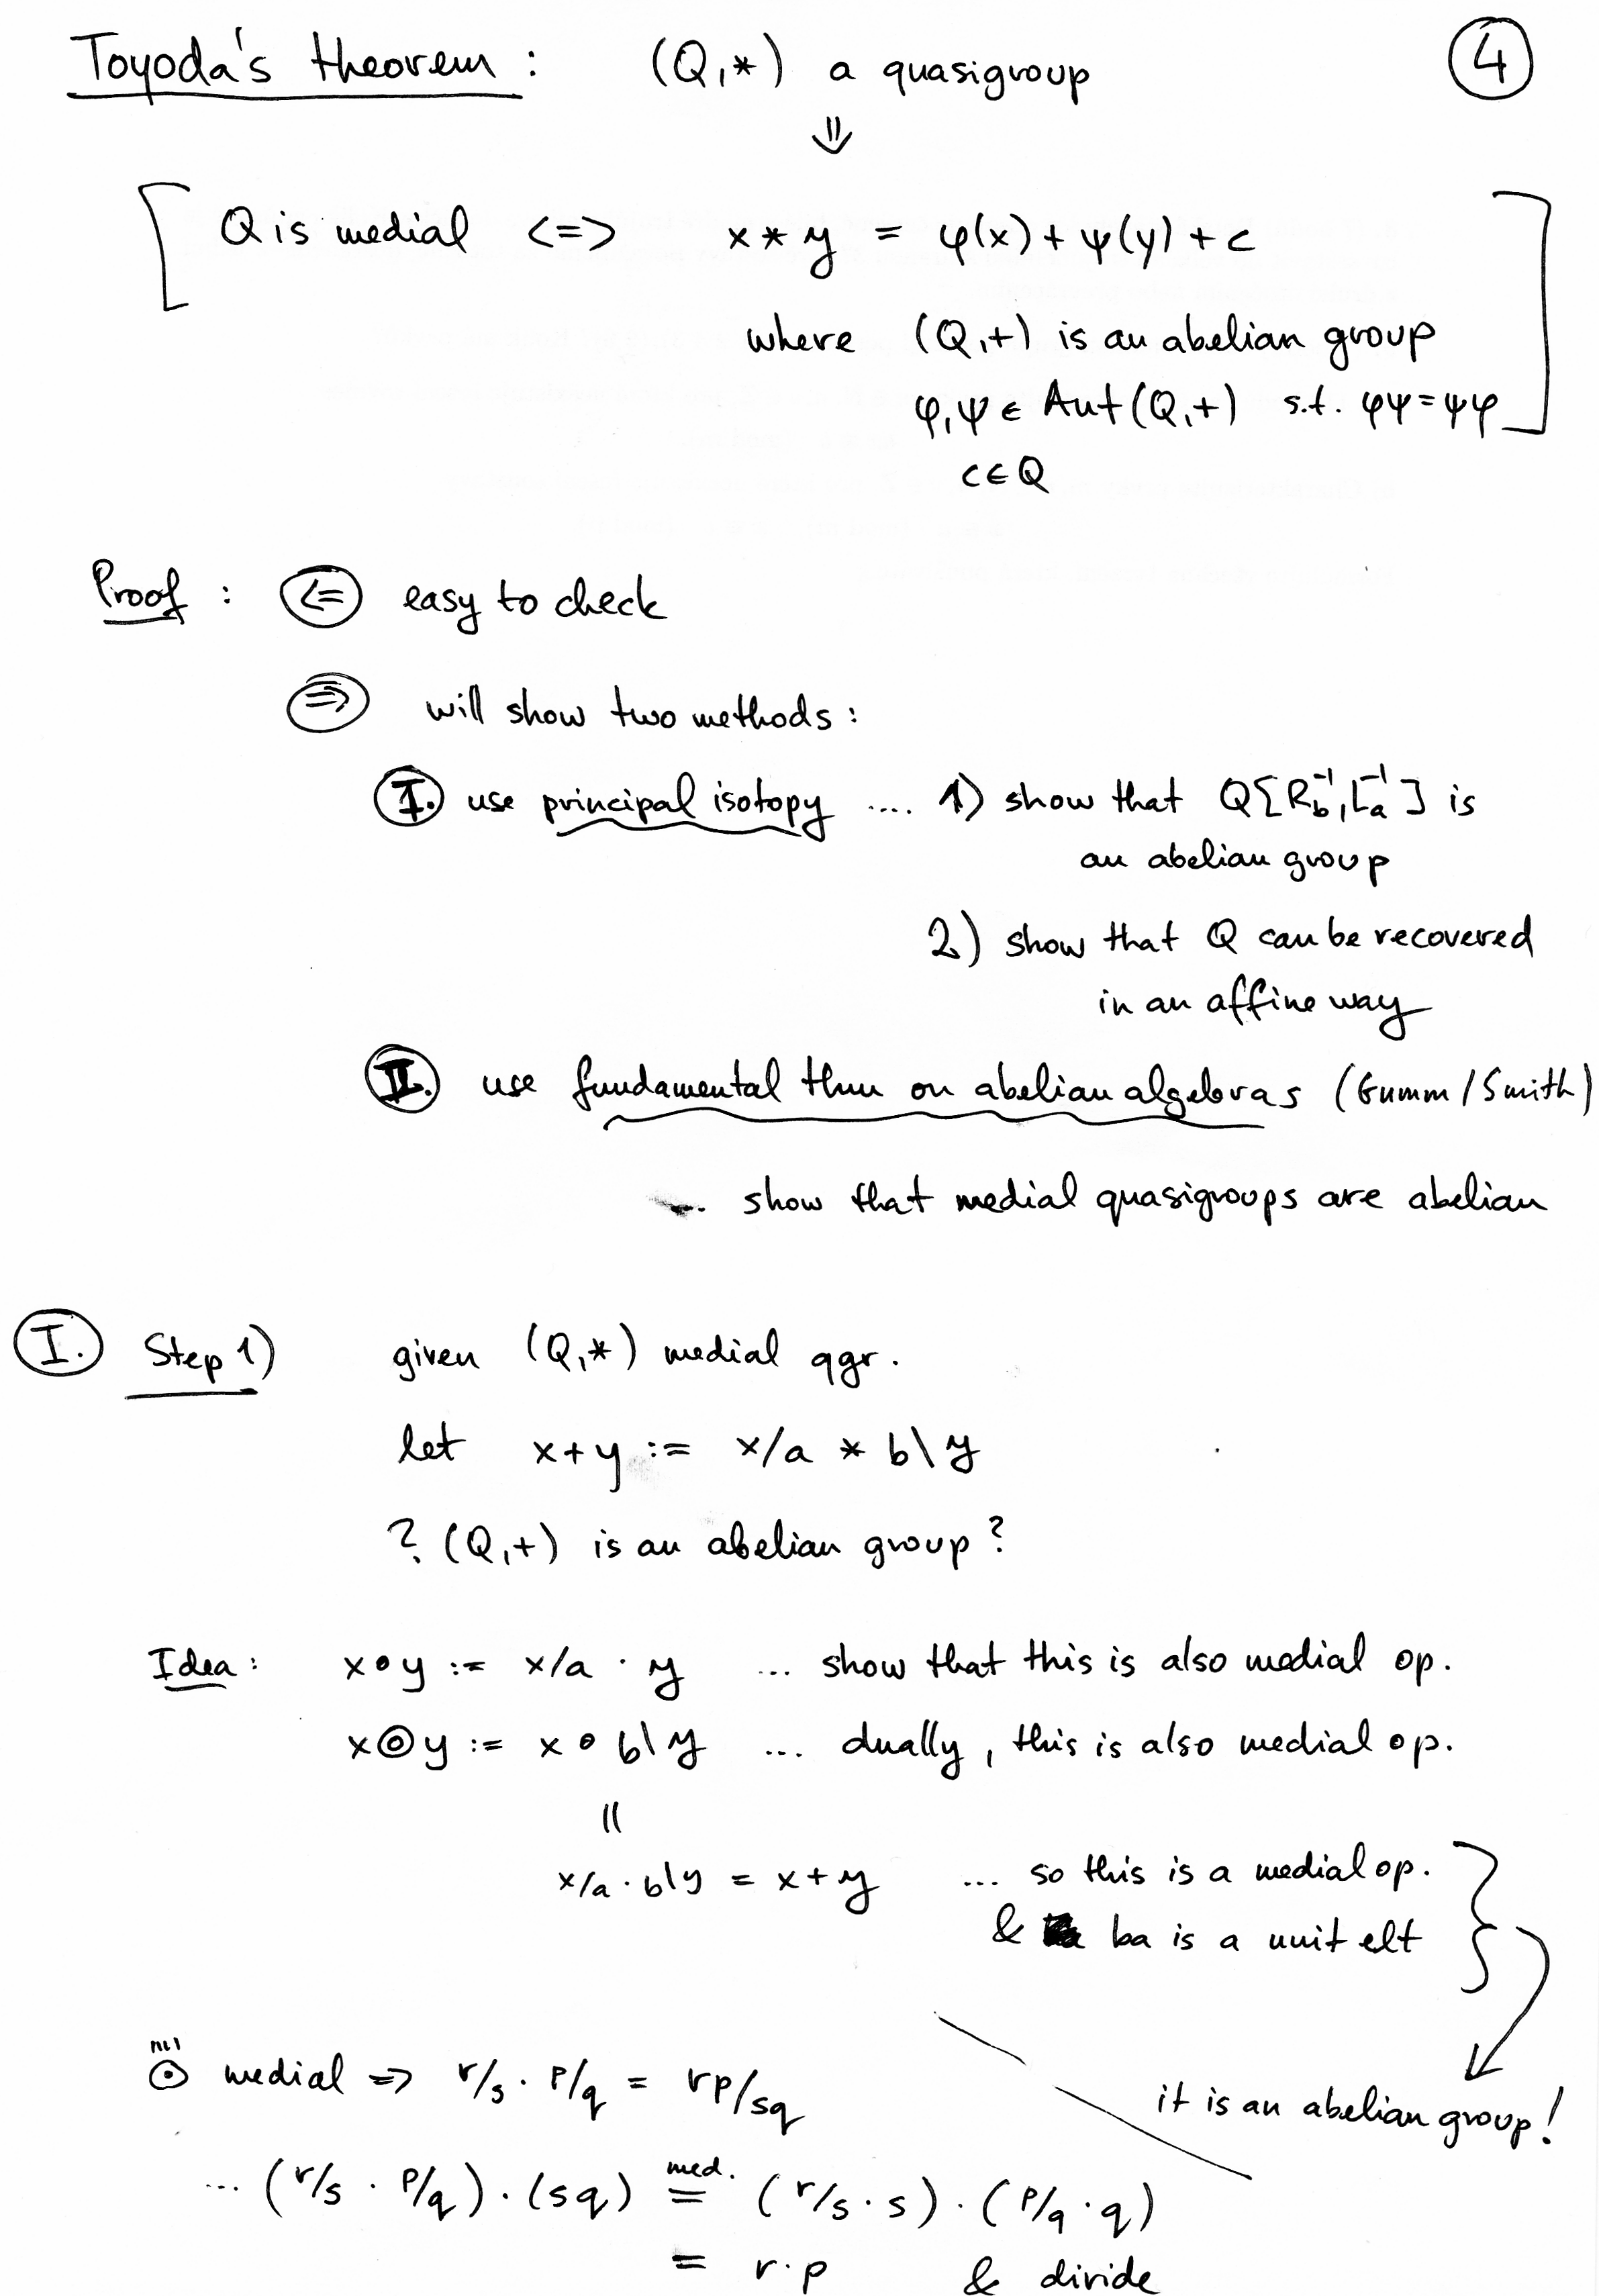 Toyoda's theorem : (Q,*) a quasigroup ④
⇓
Q is medial <=> x * y = φ(x) + ψ(y) + c
where (Q,+) is an abelian group
φ,ψ ∈ Aut(Q,+) s.t. φψ=ψφ
c∈Q
Proof : (<=) easy to check
(=>) will show two methods :
I. use principal isotopy .... 1) show that Q[R_b^-1, L_a^-1] is
an abelian group
2) show that Q can be recovered
in an affine way
II. use fundamental thm on abelian algebras (Gumm / Smith)
... show that medial quasigroups are abelian
I. Step 1) given (Q,*) medial qgr.
let x+y := x/a * b\y
? (Q,+) is an abelian group ?
Idea : x∘y := x/a · y ... show that this is also medial op.
x⊚y := x ∘ b\y ... dually, this is also medial op.
||
x/a · b\y = x+y ... so this is a medial op.
& ba is a unit elt
⊙ medial => r/s · p/q = rp/sq
it is an abelian group!
... (r/s · p/q) · (sq) =^med. (r/s · s) · (p/q · q)
= r·p & divide